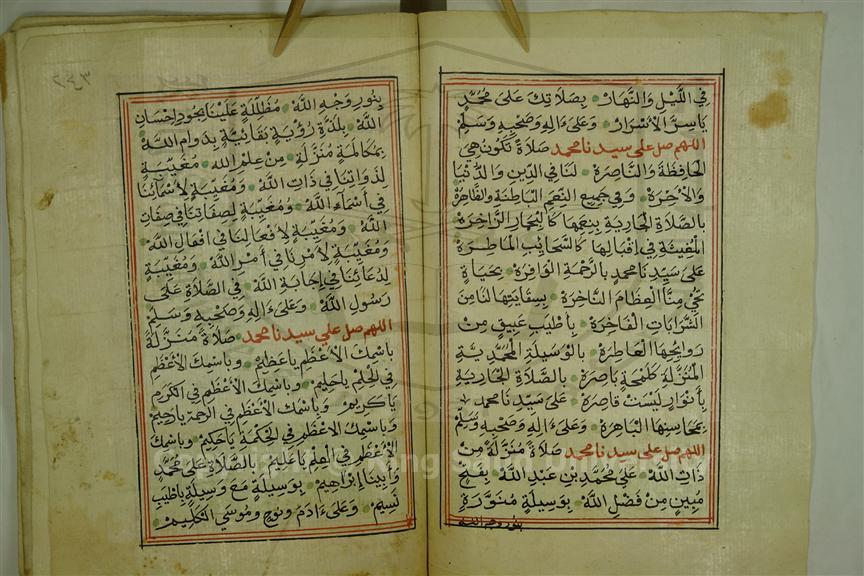 في الليل والنهار بصلاتك على محمد
ياسر الأسرار وعلى ءاله وصحبه وسلم
اللهم صل على سيدنا محمد صلاة تكون هي
الحافظة والناصرة لنا في الدين والدنيا
والآخرة وفي جميع النعم الباطنة والظاهرة
بالصلاة الجارية بنعمها كالبحار الزاخرة
المغيثة في إقبالها كالسحايب الماطرة
على سيدنا محمد بالرحمة الوافرة بحياة
تحي منا العظام الناخرة بسقايتها لنا من
الشرابات الفاخرة بأطيب عبيق من
روايحها العاطرة بالوسيلة المحمدية
المنزلة كلمحة باصرة بالصلاة الجارية
بأنوار ليست قاصرة على سيدنا محمد
بمحاسنها الباهرة وعلى ءاله وصحبه وسلم
اللهم صل على سيدنا محمد صلاة منزلة من
ذات الله على محمد بن عبد الله بفتح
مبين من فضل الله بوسيلة منورة
بنور وجه الله
بنور وجه الله مظللة علينا بجود إحسان
الله بلذة رؤية بقائية بدوام الله
بمكالمة منزلة من علم الله مغيبة
لذواتنا في ذات الله ومغيبة لأسمائنا
في أسماء الله ومغيبة لصفاتنا في صفات
الله ومغيبة لأفعالنا في أفعال الله
ومغيبة لأمرنا في أمر الله ومغيبة
لدعائنا في إجابة الله في الصلاة على
رسول الله وعلى ءاله وصحبه وسلم
اللهم صل على سيدنا محمد صلاة منزلة
باسمك الأعظم ياعظيم وباسمك الأعظم
في الحلم ياحليم وباسمك الأعظم في الكرم
ياكريم وباسمك الأعظم في الرحمة يارحيم
وباسمك الأعظم في الحكمة ياحكيم وباسمك
الأعظم في العلم ياعليم بالصلاة على محمد
وأبينا إبراهيم بوسيلة مع وسيلة باطيب
نسيم وعلى ءادم ونوح وموسى الكليم